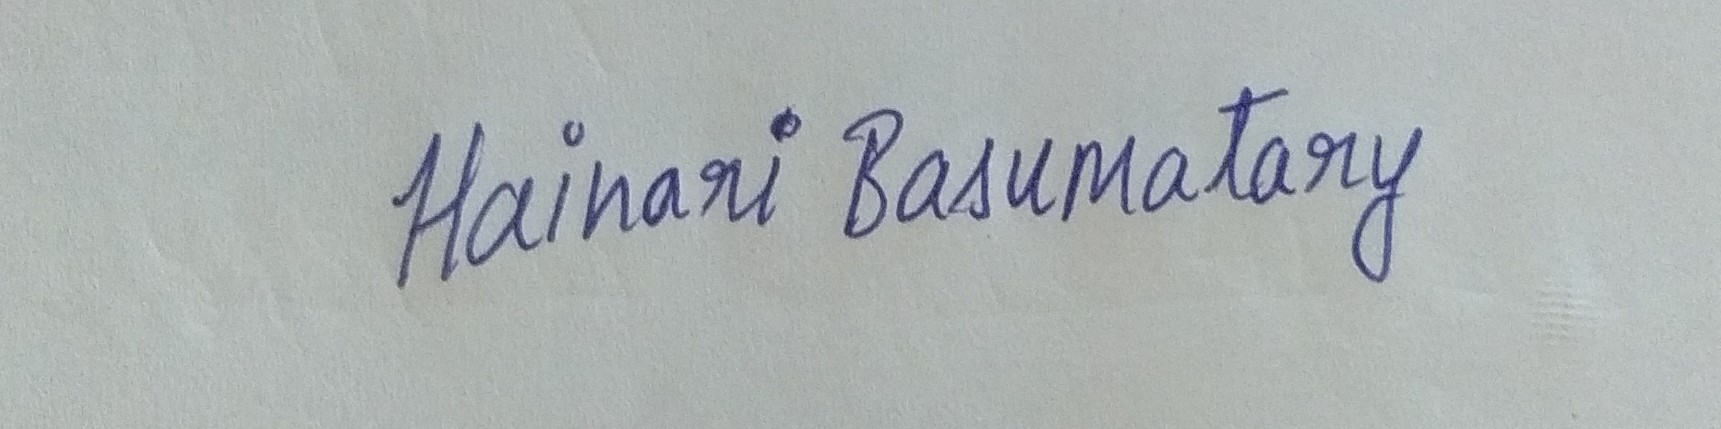 Hainari Basumatary